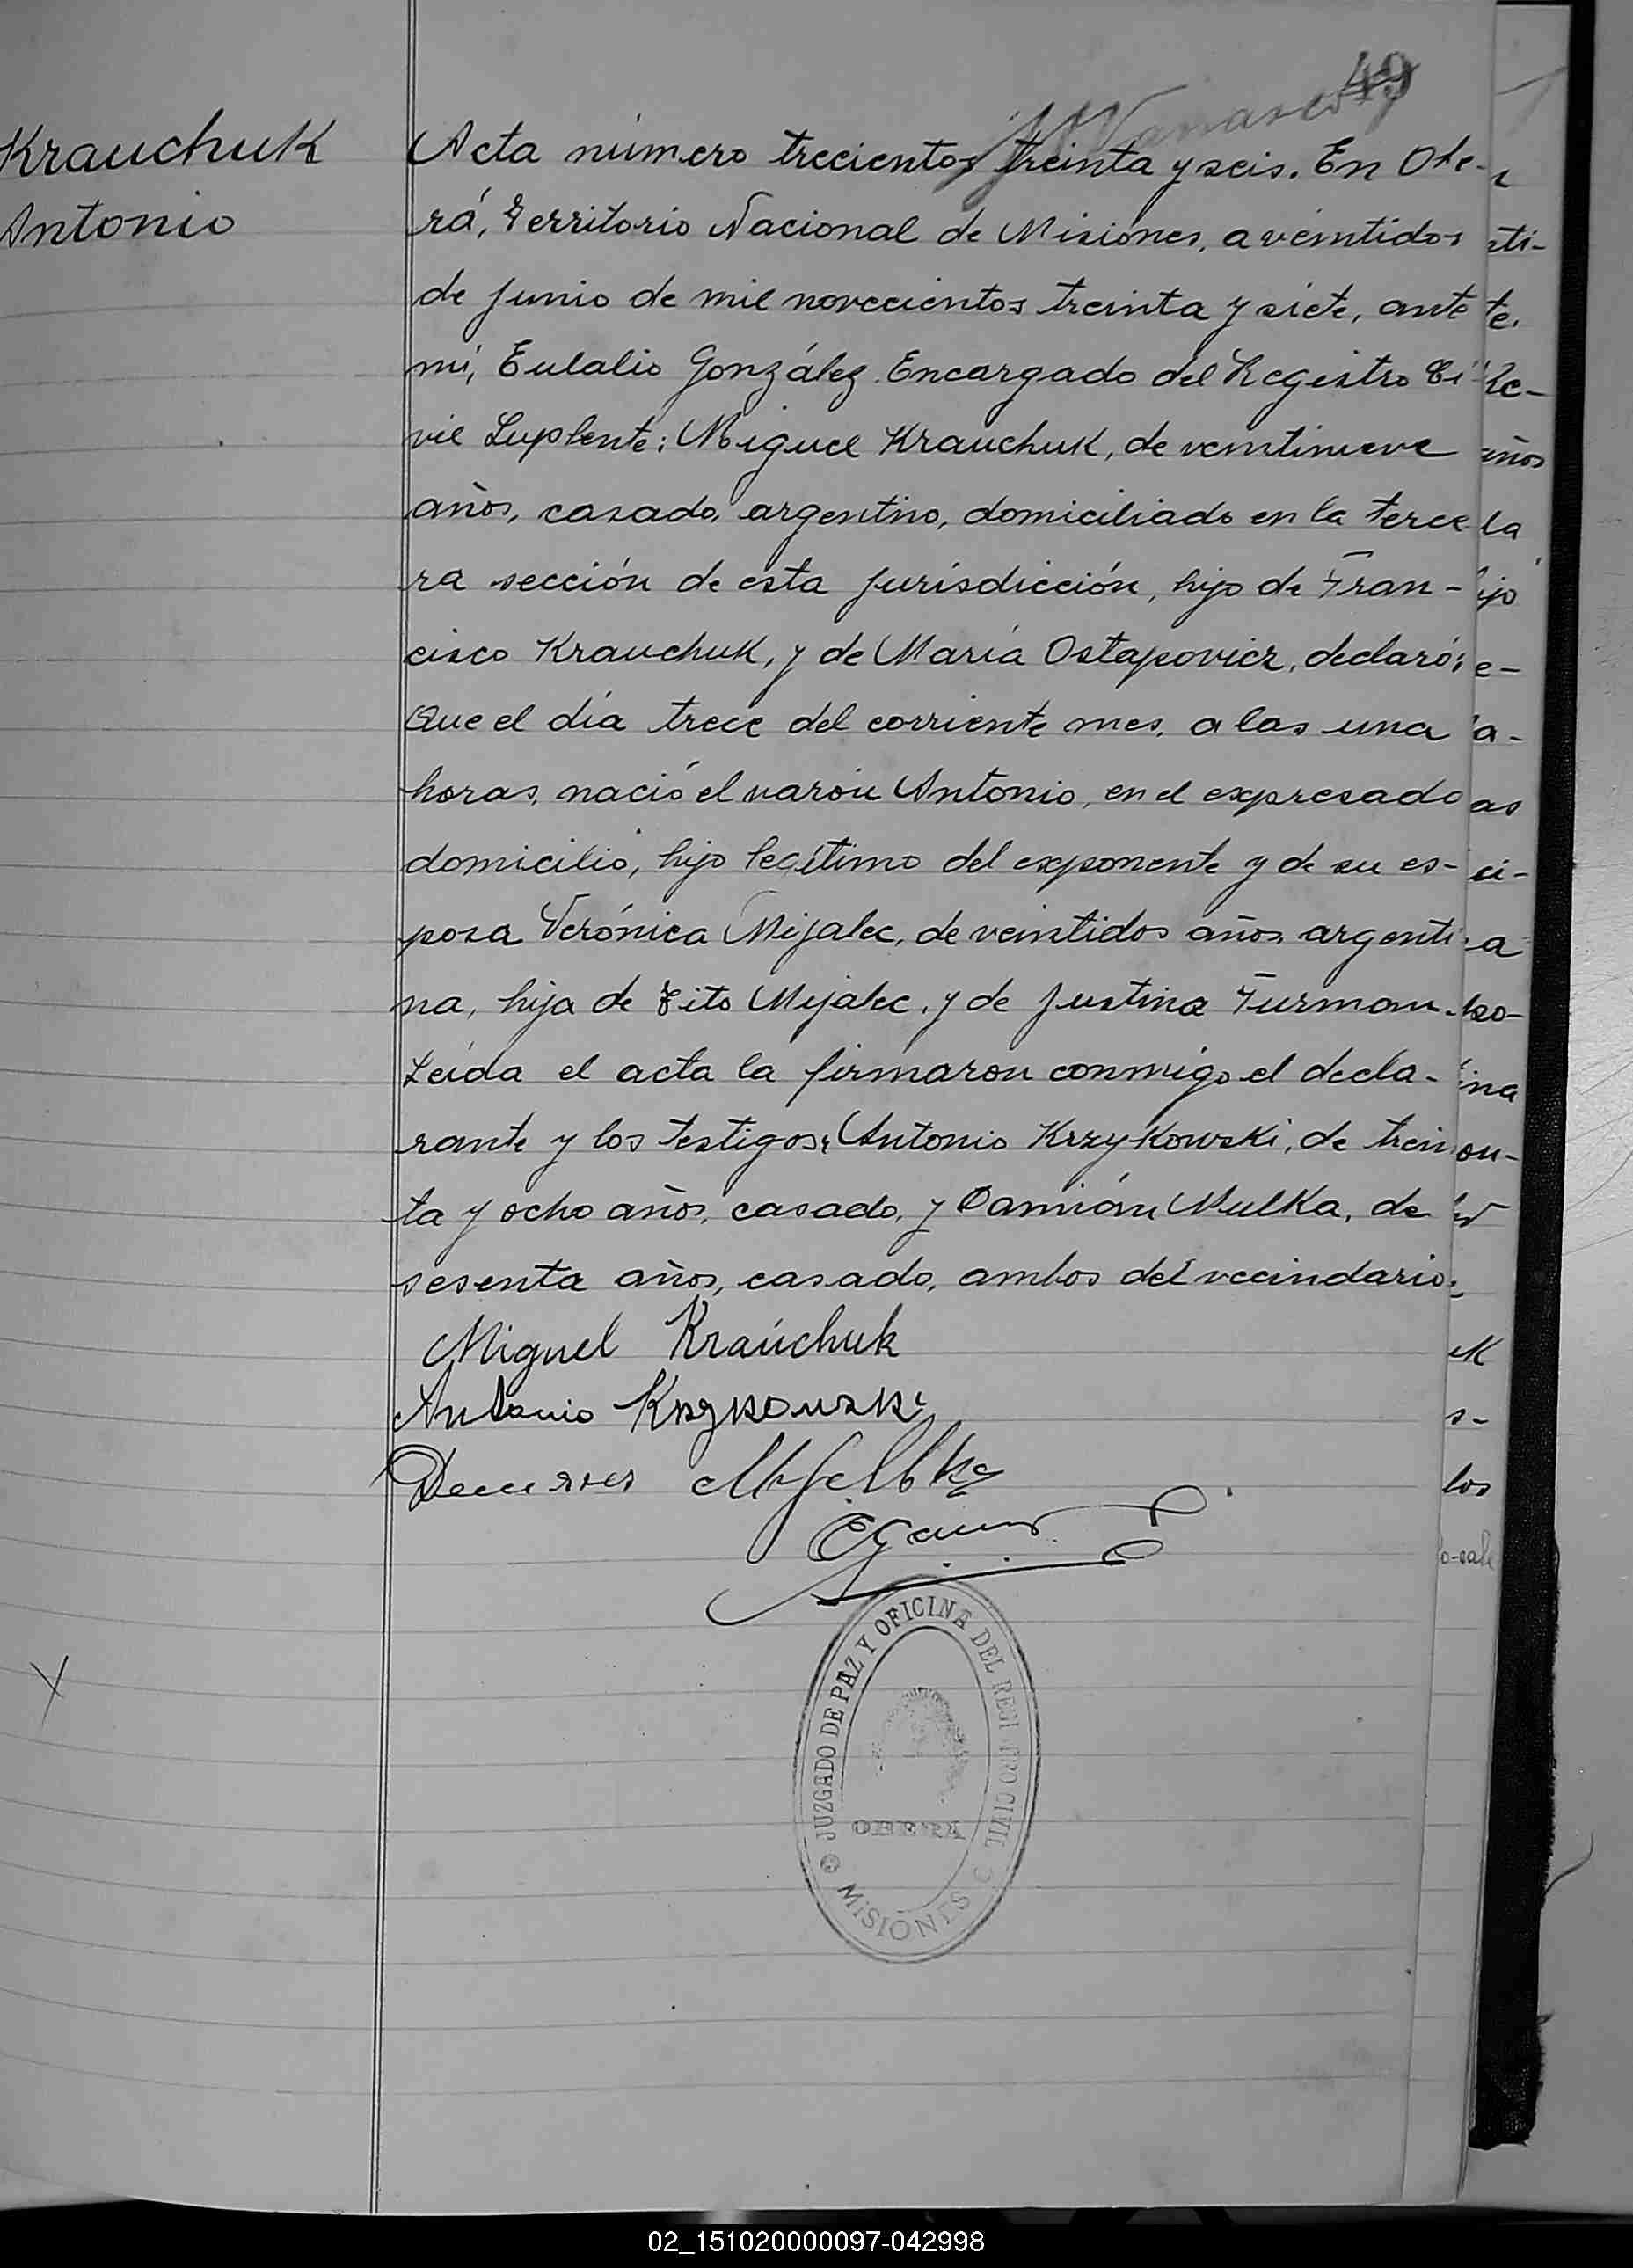 49
Krauchuk
Antonio
Acta número trecientos treinta y seis. En Obe-
rá, Territorio Nacional de Misiones, a veintidos
de junio de mil novecientos treinta y siete, ante
mí, Eulalio González Encargado del Registro Ci
vil Suplente: Miguel Krauchuk, de veintinueve
años, casado, argentino, domiciliado en la terce
ra sección de esta jurisdicción, hijo de Fran-
cisco Krauchuk, y de María Ostapovicz, declaró:
Que el día trece del corriente mes, a las una
horas, nació el varón Antonio, en el expresado
domicilio, hijo legítimo del exponente y de su es-
posa Verónica Mijalec, de veintidos años argenti
na, hija de Tito Mijalec, y de Justina Furman.
Leída el acta la firmaron conmigo el decla-
rante y los testigos: Antonio Krzykowski, de trein
ta y ocho años, casado, y Damián Mulka, de
sesenta años, casado, ambos del vecindario.
Miguel Krauchuk
Antonio
JUZGADO DE PAZ Y OFICINA DEL REGISTRO CIVIL
OBERA
MISIONES
02_151020000097-042998